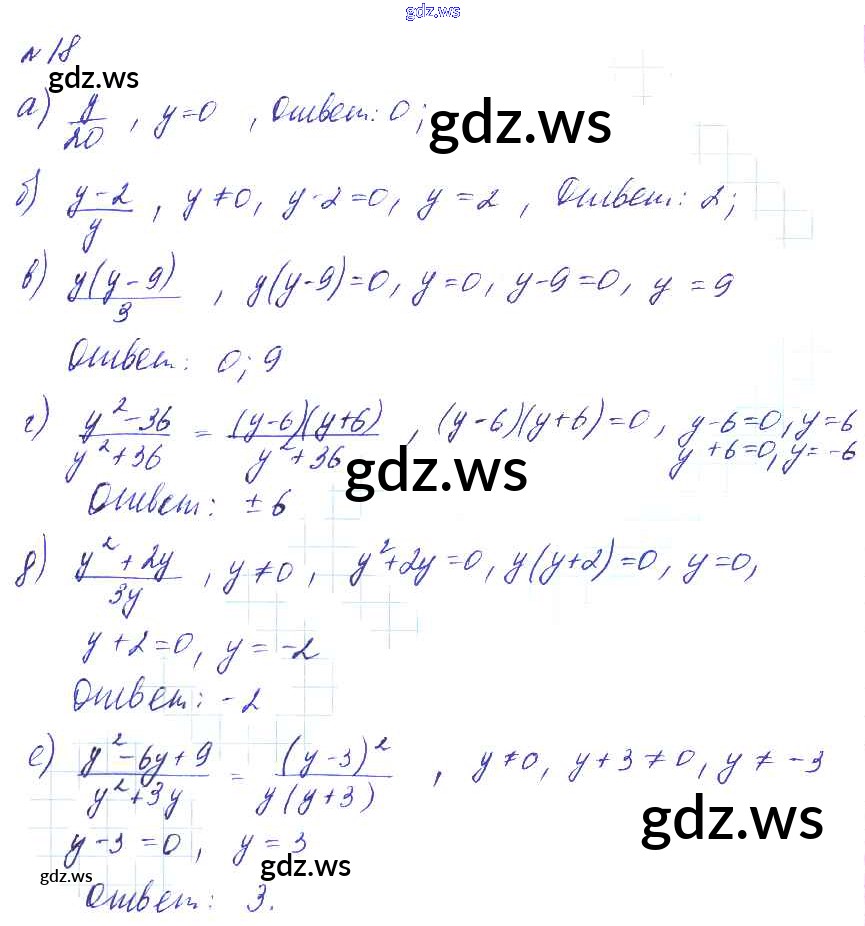 gdz.ws
№ 18
gdz.ws
а) y/20 , y=0 , Ответ: 0;
gdz.ws
б) (y-2)/y , y≠0, y-2=0, y=2, Ответ: 2;
в) y(y-9)/3 , y(y-9)=0, y=0, y-9=0, y=9
Ответ: 0; 9
г) (y²-36)/(y²+36) = (y-6)(y+6)/(y²+36) , (y-6)(y+6)=0, y-6=0, y=6
y+6=0, y=-6
gdz.ws
Ответ: ±6
д) (y²+2y)/3y , y≠0, y²+2y=0, y(y+2)=0, y=0,
y+2=0, y=-2
Ответ: -2
е) (y²-6y+9)/(y²+3y) = (y-3)²/y(y+3) , y≠0, y+3≠0, y≠-3
gdz.ws
y-3=0, y=3
gdz.ws
gdz.ws
Ответ: 3.